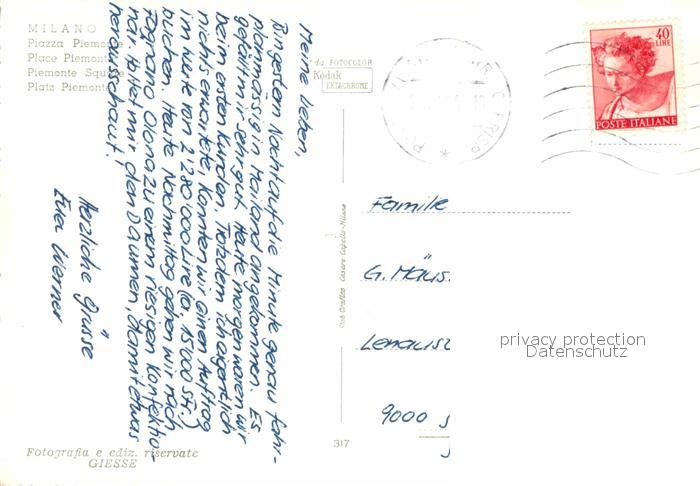 MILANO
Piazza Piemonte
Place Piemont
Piemonte Square
Platz Piemont
da FOTOCOLOR
Kodak
EKTACHROME
40
LIRE
POSTE ITALIANE
Meine Lieben,
Bin gestern Nacht auf die Minute genau fahr-
planmässig in Mailand angekommen. Es
gefällt mir sehr gut. Heute morgen waren wir
beim ersten Kunden. Trotzdem ich eigentlich
nichts erwartete, konnten wir einen Auftrag
im Werte von 2'280'000 Lire (ca. 15'000 sfr.)
buchen. Heute Nachmittag gehen wir nach
Tognano Olona zu einem riesigen Konfektio-
när. Haltet mir den Daumen, damit etwas
herausschaut!
Herzliche Grüsse
Euer Werner
Familie
G. Mäus
Lenaus
9000 S
privacy protection
Datenschutz
Stab. Grafico Cesare Capello - Milano
317
Fotografia e ediz. riservate
GIESSE